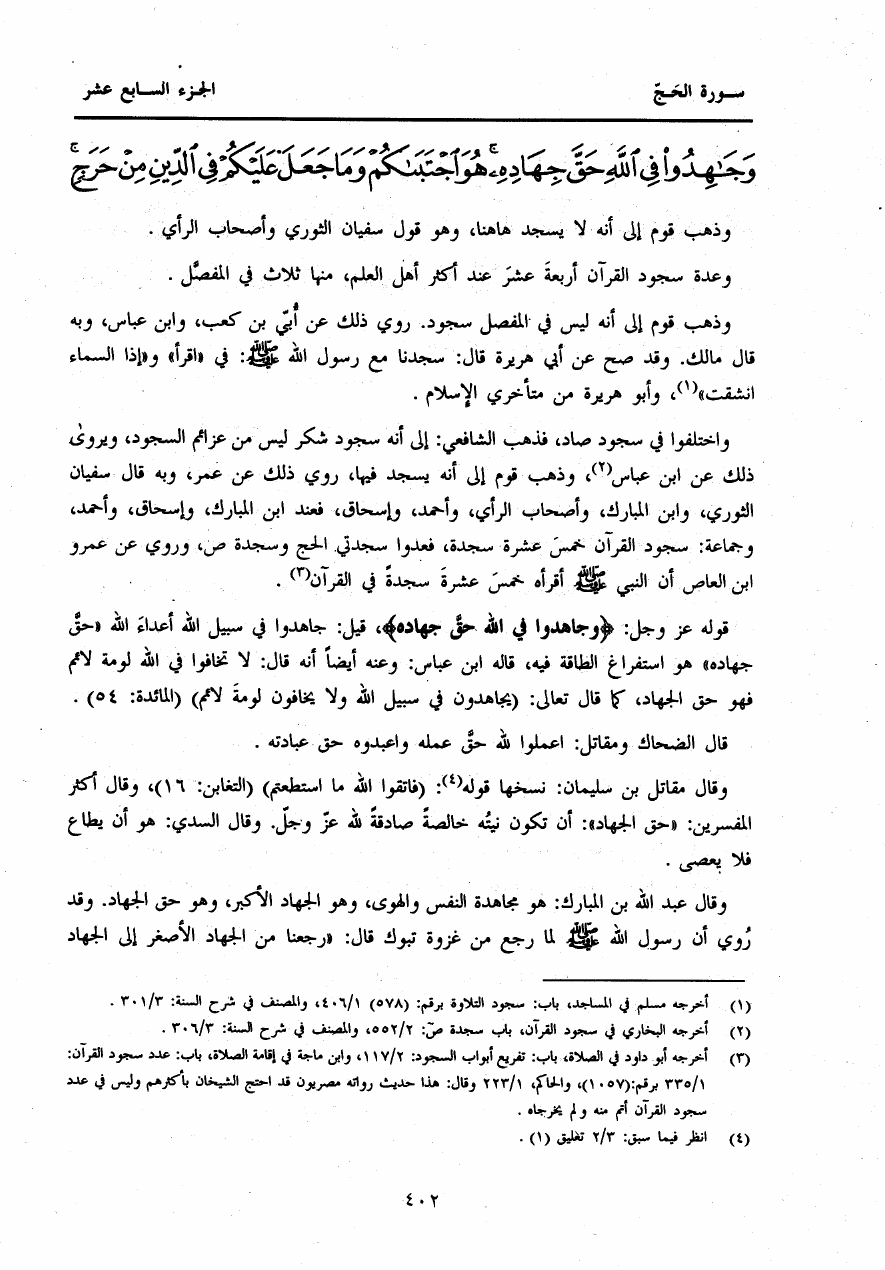 سـورة الحَـجّ
الجـزء السـابع عشر
وَجَـٰهِدُوا۟ فِى ٱللَّهِ حَقَّ جِهَادِهِۦ ۚ هُوَ ٱجْتَبَىٰكُمْ وَمَا جَعَلَ عَلَيْكُمْ فِى ٱلدِّينِ مِنْ حَرَجٍ ۚ
وذهب قوم إلى أنه لا يسجد هاهنا، وهو قول سفيان الثوري وأصحاب الرأي .
وعدة سجود القرآن أربعةَ عشرَ عند أكثر أهل العلم، منها ثلاث في المفصَّل .
وذهب قوم إلى أنه ليس في المفصل سجود. روي ذلك عن أُبيّ بن كعب، وابن عباس، وبه
قال مالك. وقد صح عن أبي هريرة قال: سجدنا مع رسول الله ﷺ: في «اقرأ» و«إذا السماء
انشقت»(١)، وأبو هريرة من متأخري الإسلام .
واختلفوا في سجود صاد، فذهب الشافعي: إلى أنه سجود شكر ليس من عزائم السجود، ويروىٰ
ذلك عن ابن عباس(٢)، وذهب قوم إلى أنه يسجد فيها، روي ذلك عن عمر، وبه قال سفيان
الثوري، وابن المبارك، وأصحاب الرأي، وأحمد، وإسحاق، فعند ابن المبارك، وإسحاق، وأحمد،
وجماعة: سجود القرآن خمسَ عشرة سجدة، فعدوا سجدتي الحج وسجدة ص، وروي عن عمرو
ابن العاص أن النبي ﷺ أقرأه خمسَ عشرةَ سجدةً في القرآن(٣) .
قوله عز وجل: ﴿وجاهدوا في الله حقَّ جهاده﴾، قيل: جاهدوا في سبيل الله أعداءَ الله «حقَّ
جهاده» هو استفراغ الطاقة فيه، قاله ابن عباس: وعنه أيضاً أنه قال: لا تخافوا في الله لومة لائم
فهو حق الجهاد، كما قال تعالى: (يجاهدون في سبيل الله ولا يخافون لومةَ لائم) (المائدة: ٥٤) .
قال الضحاك ومقاتل: اعملوا لله حقَّ عمله واعبدوه حق عبادته .
وقال مقاتل بن سليمان: نسخها قوله(٤): (فاتقوا الله ما استطعتم) (التغابن: ١٦)، وقال أكثر
المفسرين: «حق الجهاد»: أن تكون نيتُه خالصةً صادقةً لله عزّ وجلّ. وقال السدي: هو أن يطاع
فلا يعصى .
وقال عبد الله بن المبارك: هو مجاهدة النفس والهوى، وهو الجهاد الأكبر، وهو حق الجهاد. وقد
رُوي أن رسول الله ﷺ لما رجع من غزوة تبوك قال: «رجعنا من الجهاد الأصغر إلى الجهاد
(١) أخرجه مسلم في المساجد، باب: سجود التلاوة برقم: (٥٧٨) ٤٠٦/١، والمصنف في شرح السنة: ٣٠١/٣ .
(٢) أخرجه البخاري في سجود القرآن، باب سجدة صۤ: ٥٥٢/٢، والمصنف في شرح السنة: ٣٠٦/٣ .
(٣) أخرجه أبو داود في الصلاة، باب: تفريع أبواب السجود: ١١٧/٢، وابن ماجة في إقامة الصلاة، باب: عدد سجود القرآن:
٣٣٥/١ برقم:(١٠٥٧)، والحاكم، ٢٢٣/١ وقال: هذا حديث رواته مصريون قد احتج الشيخان بأكثرهم وليس في عدد
سجود القرآن أتم منه ولم يخرجاه .
(٤) انظر فيما سبق: ٢/٣ تعليق (١) .
٤٠٢